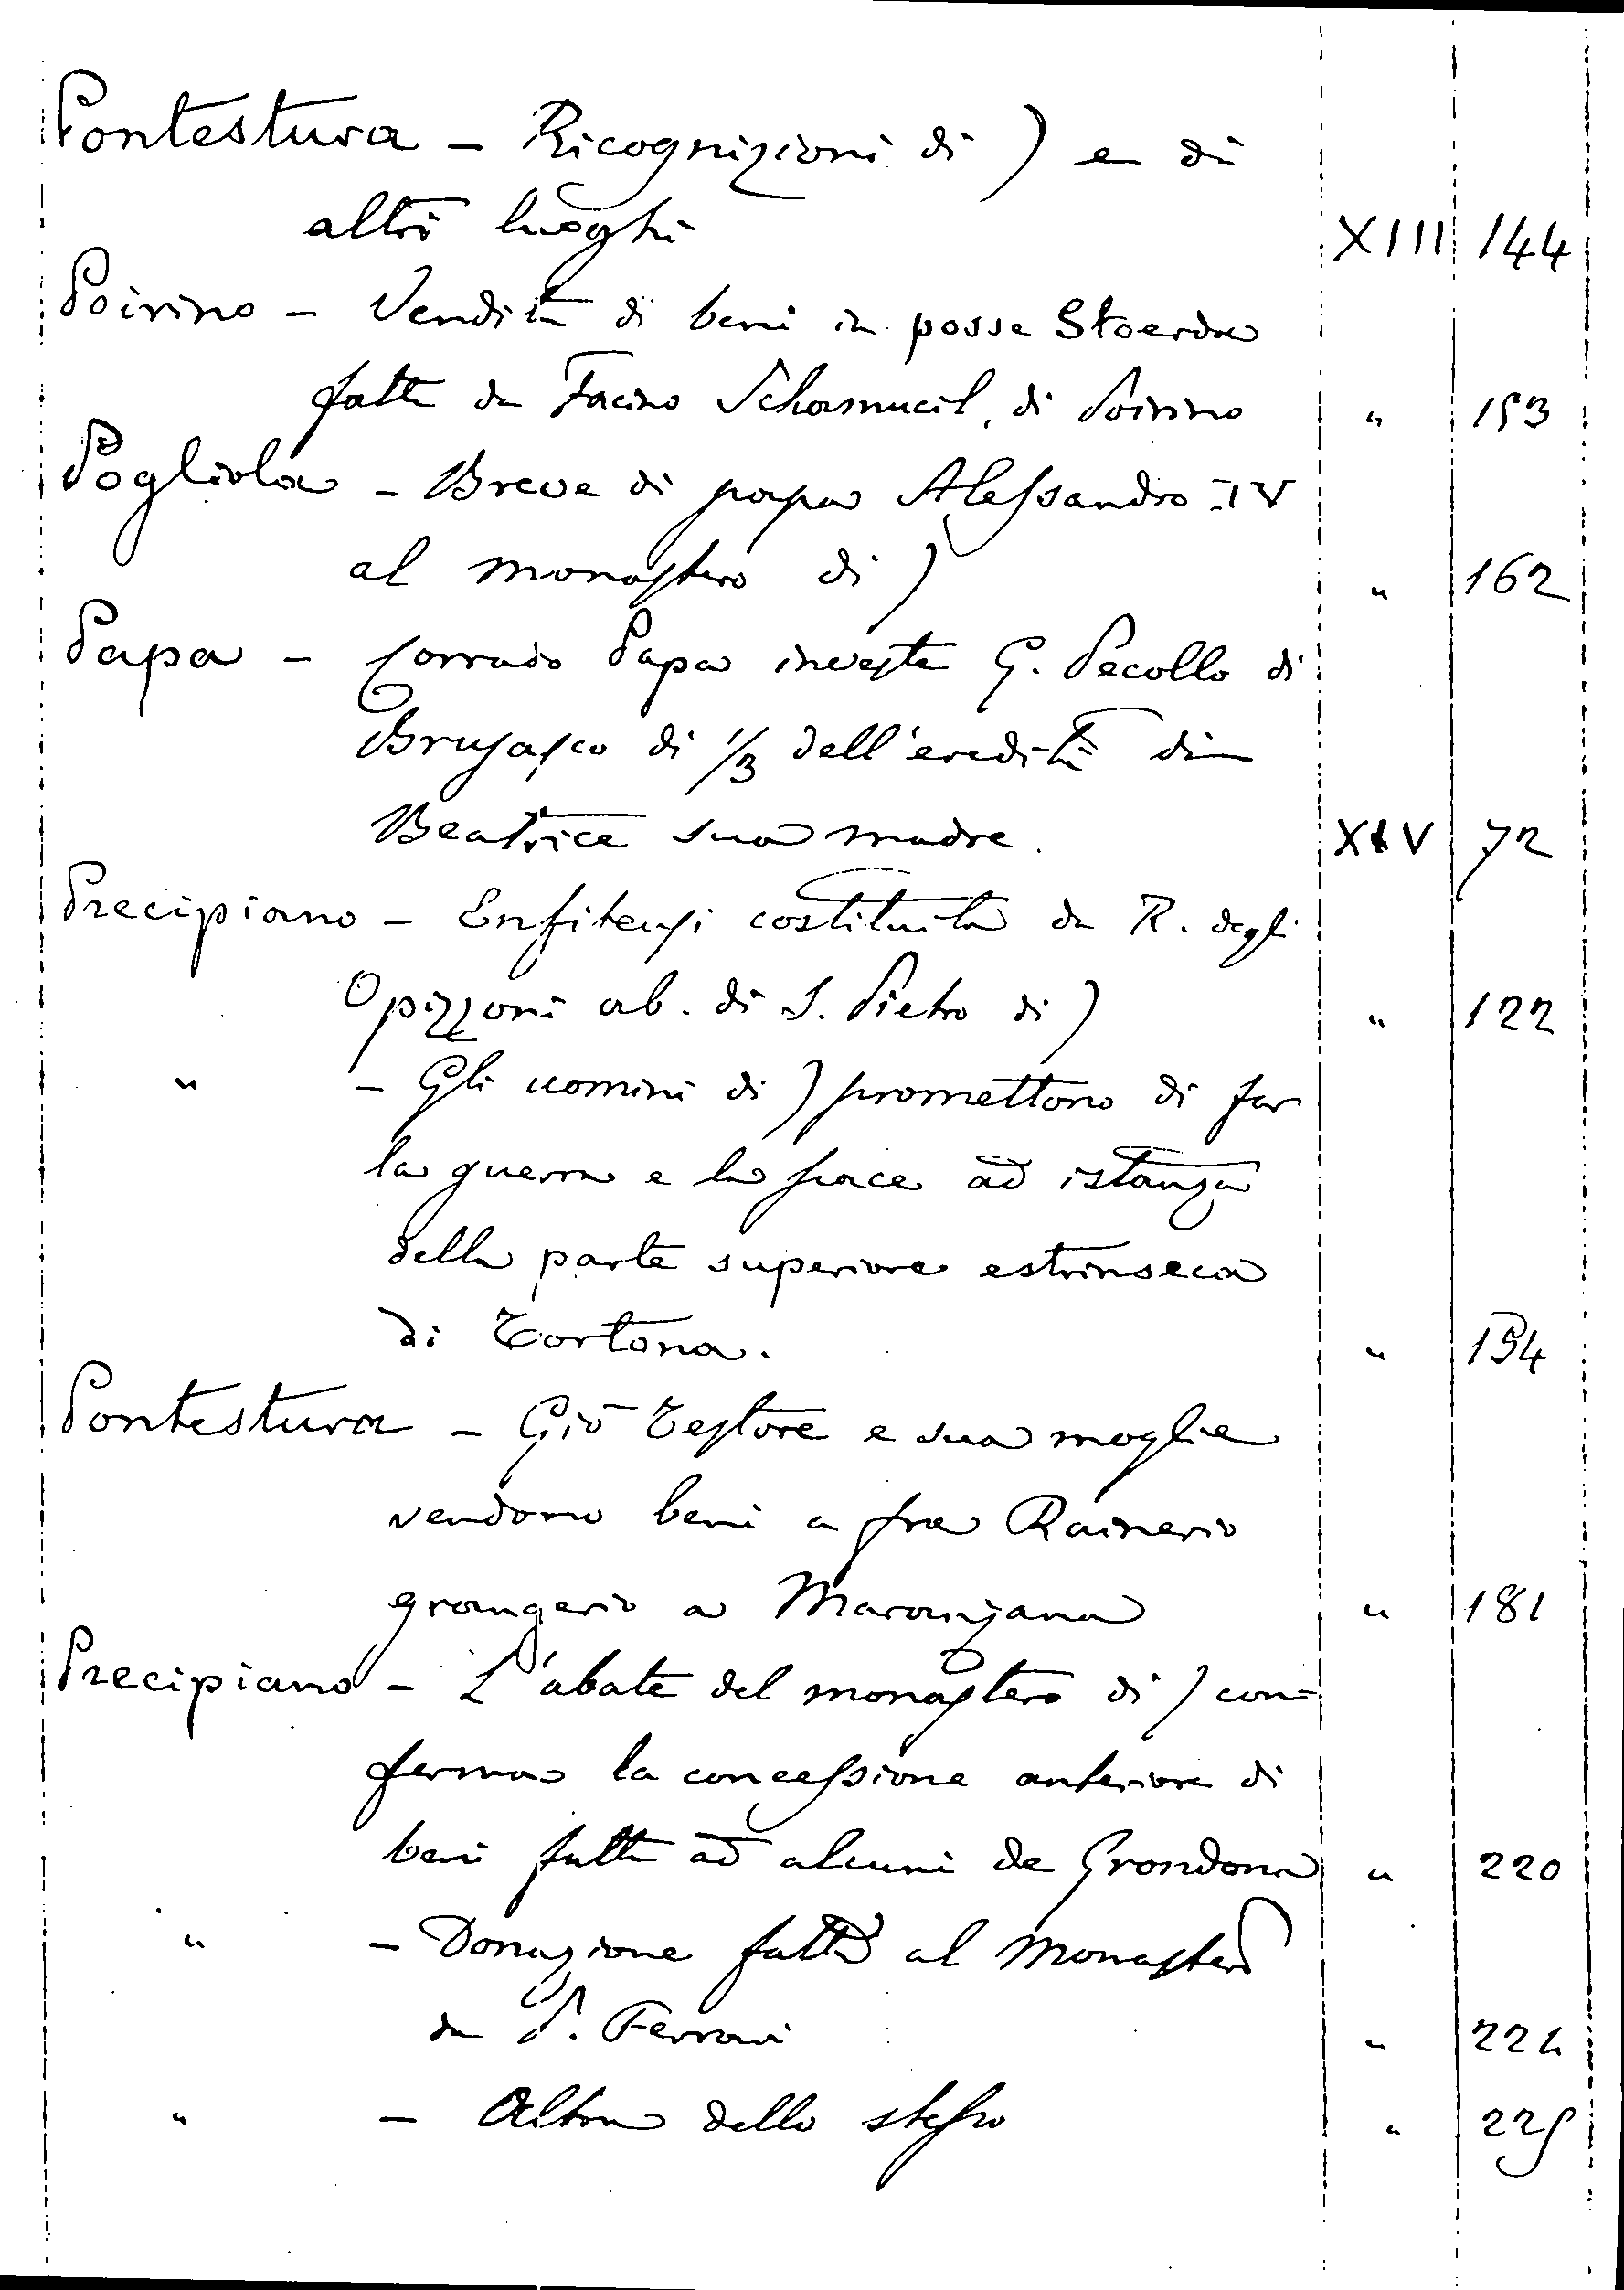 Pontestura - Ricognizioni di ) e di
altri luoghi XIII 144
Poirino - Vendita di beni in posse Stoerda
fatta da Facino di Poirino " 153
Pogliola - Breve di papa Alessandro IV
al monastero di ) " 162
Papa - Corrado Papa investe G. Pecollo di
Brusasco di 1/3 dell'eredità di
Beatrice sua madre. XIV 72
Precipiano - Enfiteusi costituita da R. degli
Opizzoni ab. di S. Pietro di ) " 122
" - Gli uomini di ) promettono di far
la guerra e la pace ad istanza
della parte superiore estrinseca
di Tortona. " 154
Pontestura - Giò Testore e sua moglie
vendono beni a fra Rainerio
grangerio a " 181
Precipiano - L'abate del monastero di ) con=
ferma la concessione anteriore di
beni fatta ad alcuni de Grondona " 220
" - Donazione fatta al Monastero
da P. Ferrari "
" - Altra dello stesso " 225